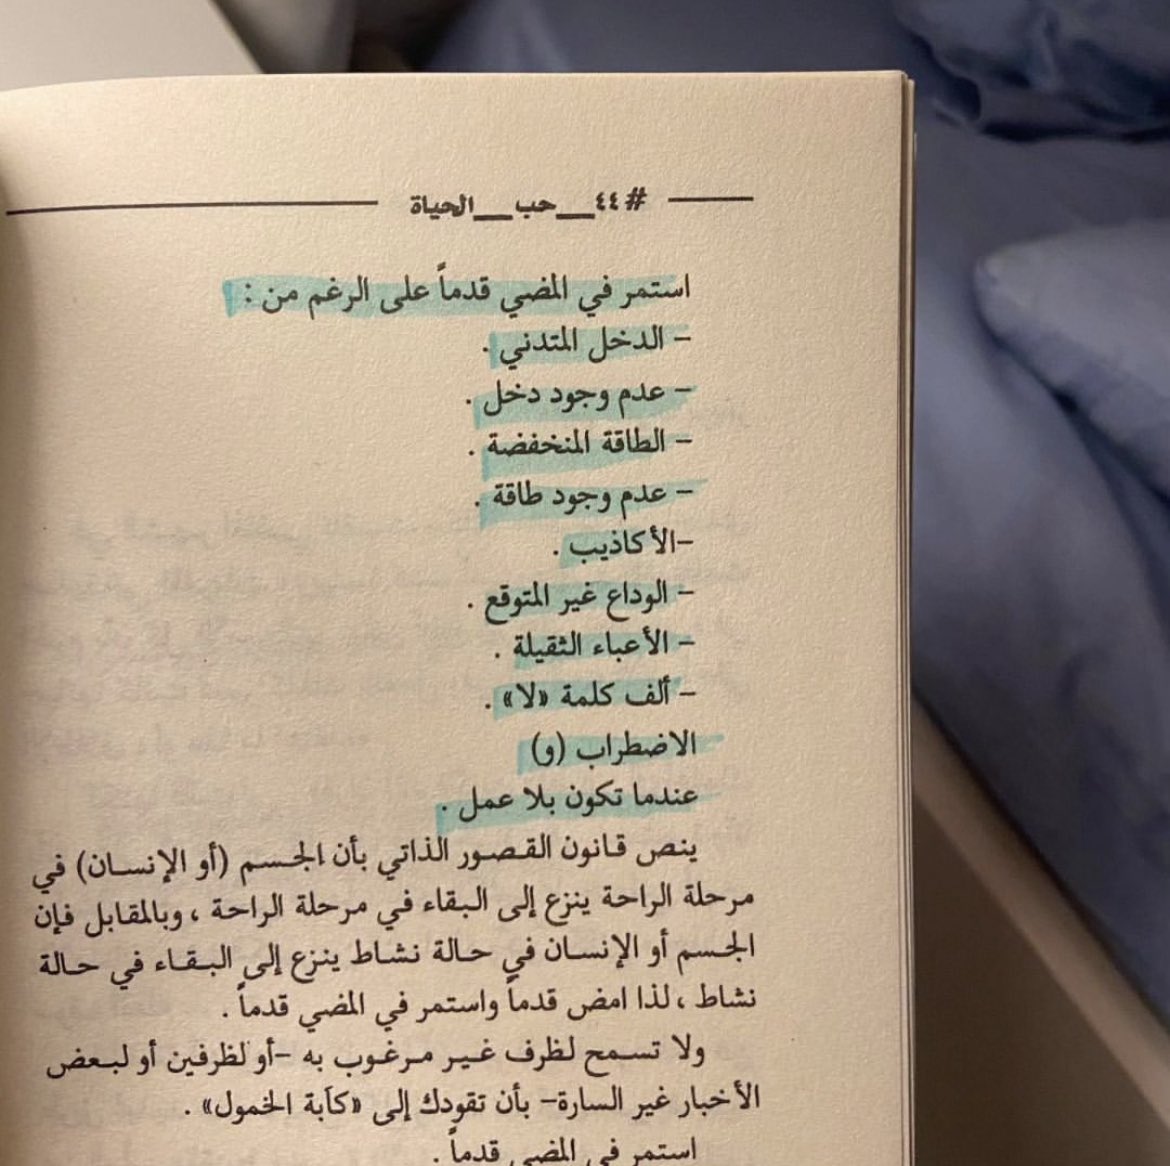 #٤٤__حب__الحياة
استمر في المضي قدماً على الرغم من :
- الدخل المتدني .
- عدم وجود دخل .
- الطاقة المنخفضة .
- عدم وجود طاقة .
-الأكاذيب .
- الوداع غير المتوقع .
- الأعباء الثقيلة .
- ألف كلمة «لا» .
الاضطراب (و)
عندما تكون بلا عمل .
ينص قانون القصور الذاتي بأن الجسم (أو الإنسان) في
مرحلة الراحة ينزع إلى البقاء في مرحلة الراحة ، وبالمقابل فإن
الجسم أو الإنسان في حالة نشاط ينزع إلى البقاء في حالة
نشاط ، لذا امض قدماً واستمر في المضي قدماً .
ولا تسمح لظرف غير مرغوب به -أو لظرفين أو لبعض
الأخبار غير السارة- بأن تقودك إلى «كآبة الخمول» .
استمر في المضي قدماً .